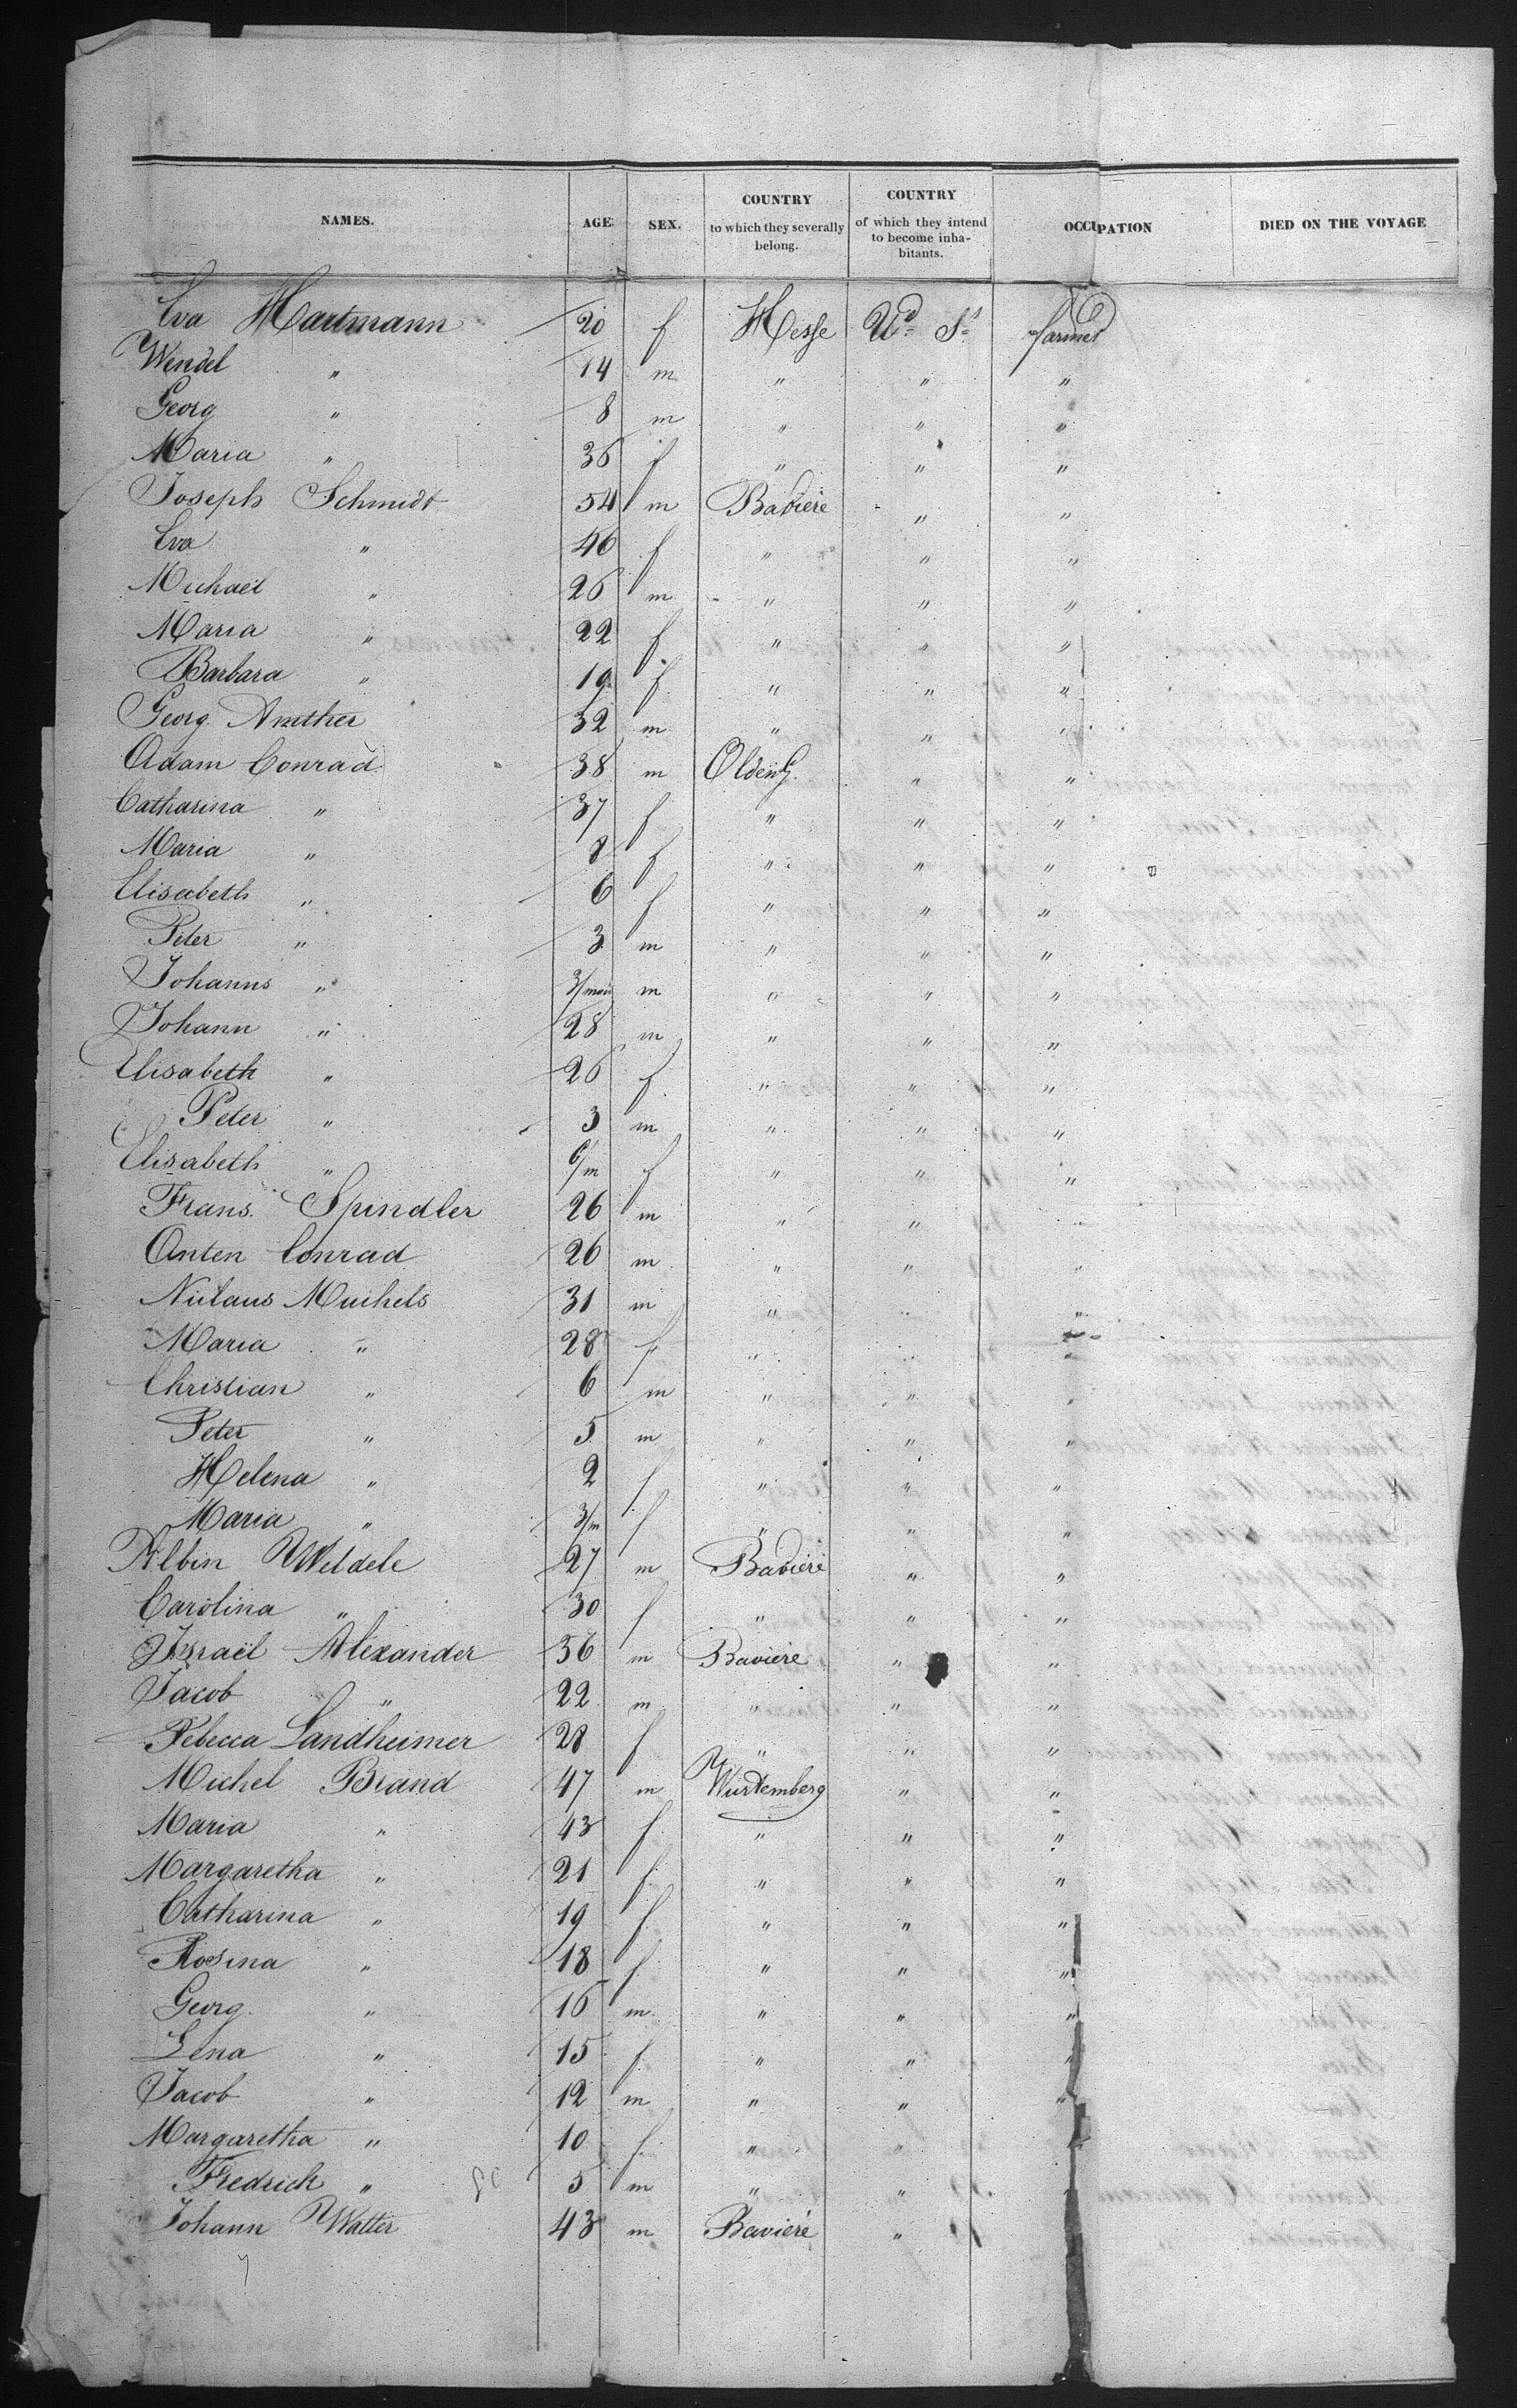 NAMES. AGE. SEX. COUNTRY to which they severally belong. COUNTRY of which they intend to become inhabitants. OCCUPATION DIED ON THE VOYAGE
Eva Hartmann 20 f Hesse Ud. Ss. farmer
Wendel " 14 m " " "
Georg " 8 m " " "
Maria " 36 f " " "
Joseph Schmidt 54 m Baviere " "
Eva " 46 f " " "
Michaël " 26 m " " "
Maria " 22 f " " "
Barbara " 19 f " " "
Georg Amther 32 m " " "
Adam Conrad 38 m Oldenb. " "
Catharina " 37 f " " "
Maria " 8 f " " "
Elisabeth " 6 f " " "
Peter " 3 m " " "
Johanns " 3/mois m " " "
Johann " 28 m " " "
Elisabeth " 26 f " " "
Peter " 3 m " " "
Elisabeth " 6/m f " " "
Frans. Spindler 26 m " "
Anten Conrad 26 m " " "
Niclaus Michels 31 m " " "
Maria " 28 f " " "
Christian " 6 m " " "
Peter " 5 m " " "
Helena " 2 f " " "
Maria " 3/m f " " "
Albin Weldele 27 m Baviere " "
Carolina " 30 f " " "
Israël Alexander 56 m Baviere " "
Jacob " 22 m " " "
Rebecca Landheimer 28 f " " "
Michel Brand 47 m Wurtemberg " "
Maria " 43 f " " "
Margaretha " 21 f " " "
Catharina " 19 f " " "
Rosina " 18 f " " "
Georg. " 16 m " " "
Lena " 15 f " " "
Jacob " 12 m " " "
Margaretha " 10 f " "
Fredrich " 5 m " "
Johann Walter 43 m Baviere "